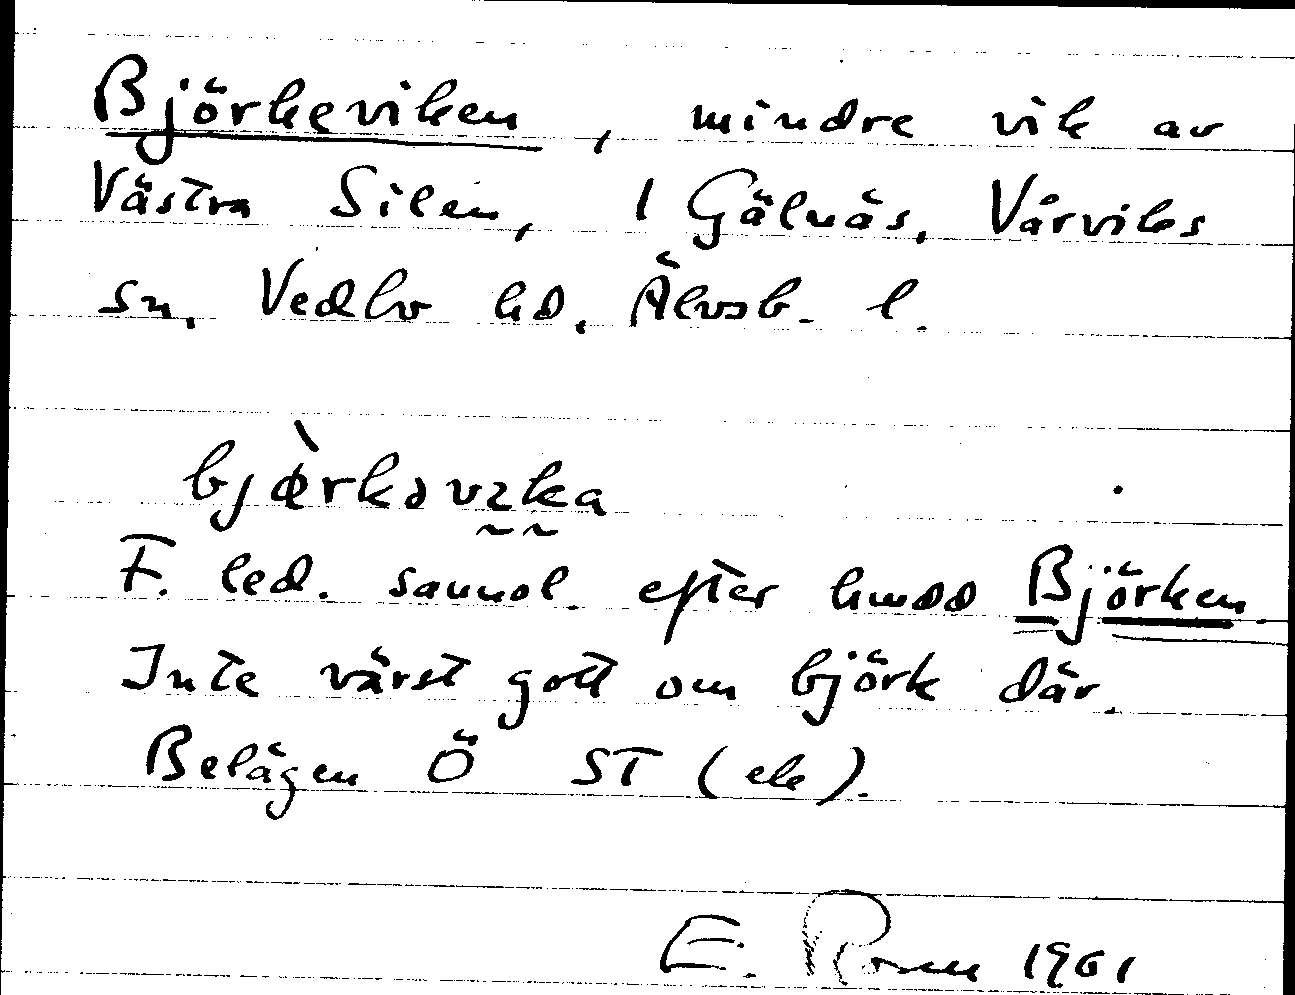 Björkeviken, mindre vik av
Västra Silen, 1 Gälnäs, Vårviks
sn. Vedbo hd. Älvsb. l.
bjœ̀rkəvɪka
F. led. sannol. efter hmdd Björken.
Inte värst gott om björk där.
Belägen Ö ST (ek).
E. Rosen 1961